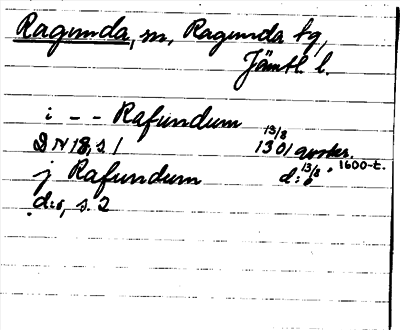 Ragunda, sn, Ragunda tg,
Jämtl. l.
i - - Rafundum
DN 18, s 1 13/8 1301 avskr. 1600-t.
j Rafundum d:o 13/8
d:o, s. 2